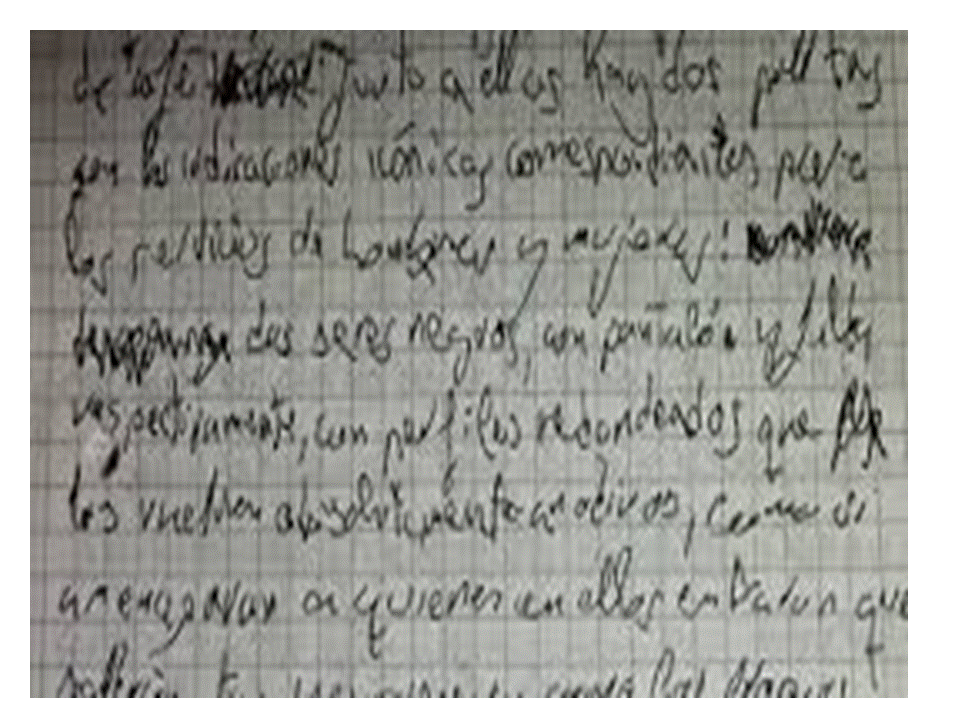 de café Junto a ellas hay dos puertas
con las indicaciones icónicas correspondientes para
los servicios de hombres y mujeres:
dos seres negros, con pantalón y falda
respectivamente, con perfiles redondeados que
los vuelven absolutamente anodinos, como si
amenazaran a quienes en ellos entraran que